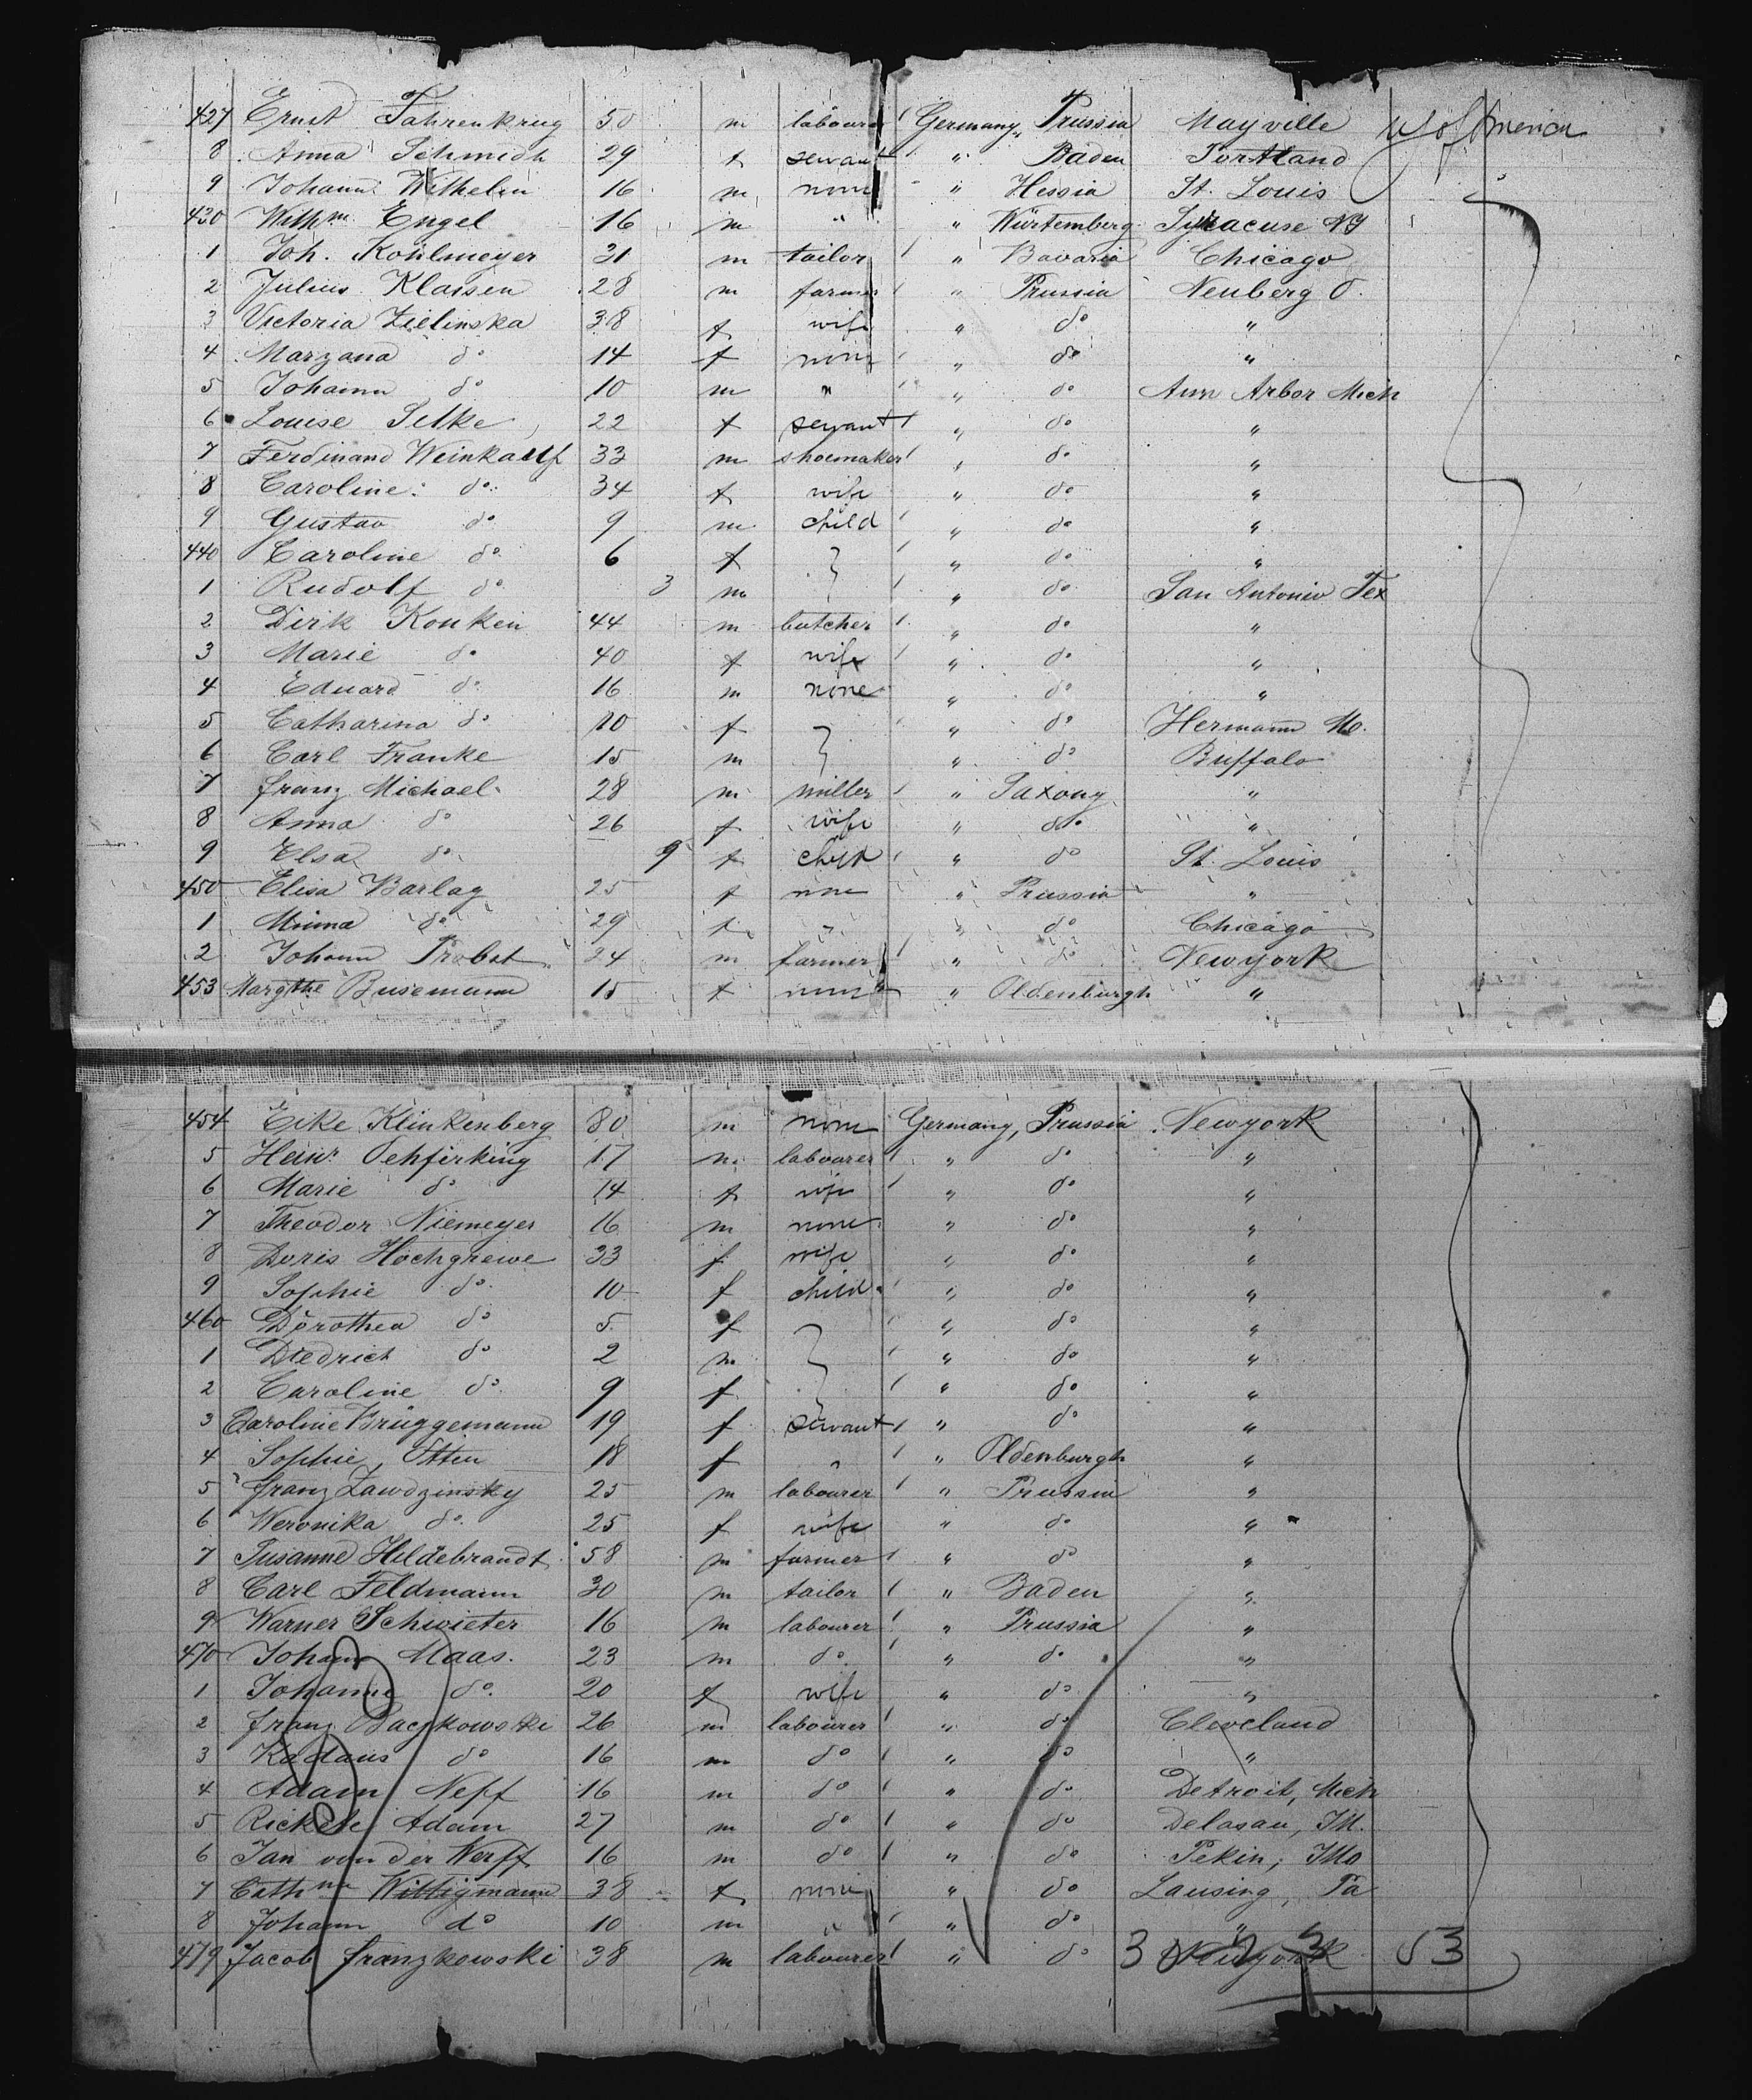 427 Ernst Fahrenkrug 50 m labourer Germany, Prussia Mayville U S of America
8 Anna Schmidt 29 f servant " Baden Portland
9 Johann Wilhelm 16 m none " Hessia St. Louis
430 Wilhm. Engel 16 m " " Würtemberg Syracuse NY
1 Joh. Kohlmeyer 31 m tailor " Bavaria Chicago
2 Julius Klassen 28 m farmer " Prussia Neuberg O.
3 Victoria Zielinska 38 f wife " do "
4 Marzana do 14 f none " do "
5 Johann do 10 m " " do Ann Arbor Mich
6 Louise Silke 22 f servant " do "
7 Ferdinand Weinkauf 33 m shoemaker " do "
8 Caroline do 34 f wife " do "
9 Gustav do 9 m child " do "
440 Caroline do 6 f } " do "
1 Rudolf do 3 m " do San Antonio Tex
2 Dirk Konken 44 m butcher " do "
3 Marie do 40 f wife " do "
4 Eduard do 16 m none " do "
5 Catharina do 10 f } " do Hermann Mo.
6 Carl Franke 15 m " do Buffalo
7 Franz Michael 28 m miller " Saxony "
8 Anna do 26 f wife " do "
9 Elsa do 9 f child " do St. Louis
450 Elisa Barlag 25 f none " Prussia "
1 Minna do 29 f " " do Chicago
2 Johann Probst 24 m farmer " do Newyork
453 Margthe Busemann 15 f none " Oldenburgh "
454 Eike Klinkenberg 80 m none Germany, Prussia Newyork
5 Heinr. 17 m labourer " do "
6 Marie do 14 f wife " do "
7 Theodor Niemeyer 16 m none " do "
8 Doris Hochgrewe 33 f wife " do "
9 Sophie do 10 f child " do "
460 Dorothea do 5 f } " do "
1 Diedrich do 2 m " do "
2 Caroline do 9 f " do "
3 Caroline Brüggemann 19 f servant " do "
4 Sophie Otten 18 f " " Oldenburgh "
5 Franz Zawdzinsky 25 m labourer " Prussia "
6 Weronika do 25 f wife " do "
7 Susanne Hildebrandt 58 m farmer " do "
8 Carl Feldmann 30 m tailor " Baden "
9 Warner Schwieter 16 m labourer " Prussia "
470 Johann Maas. 23 m do " do "
1 Johanne do 20 f wife " do "
2 Franz Baczkowski 26 m labourer " do Cleveland
3 Kadaus do 16 m do " do "
4 Adam Neff 16 m do " do Detroit, Mich
5 Adam 27 m do " do Delasau, Ill.
6 Jan van der Werff 16 m do " do Pekin, Illo
7 Cathne Wittigmann 38 f none " do Lansing, Pa
8 Johann do 10 m " " do "
479 Jacob Franzkowski 38 m labourer " do Newyork 53